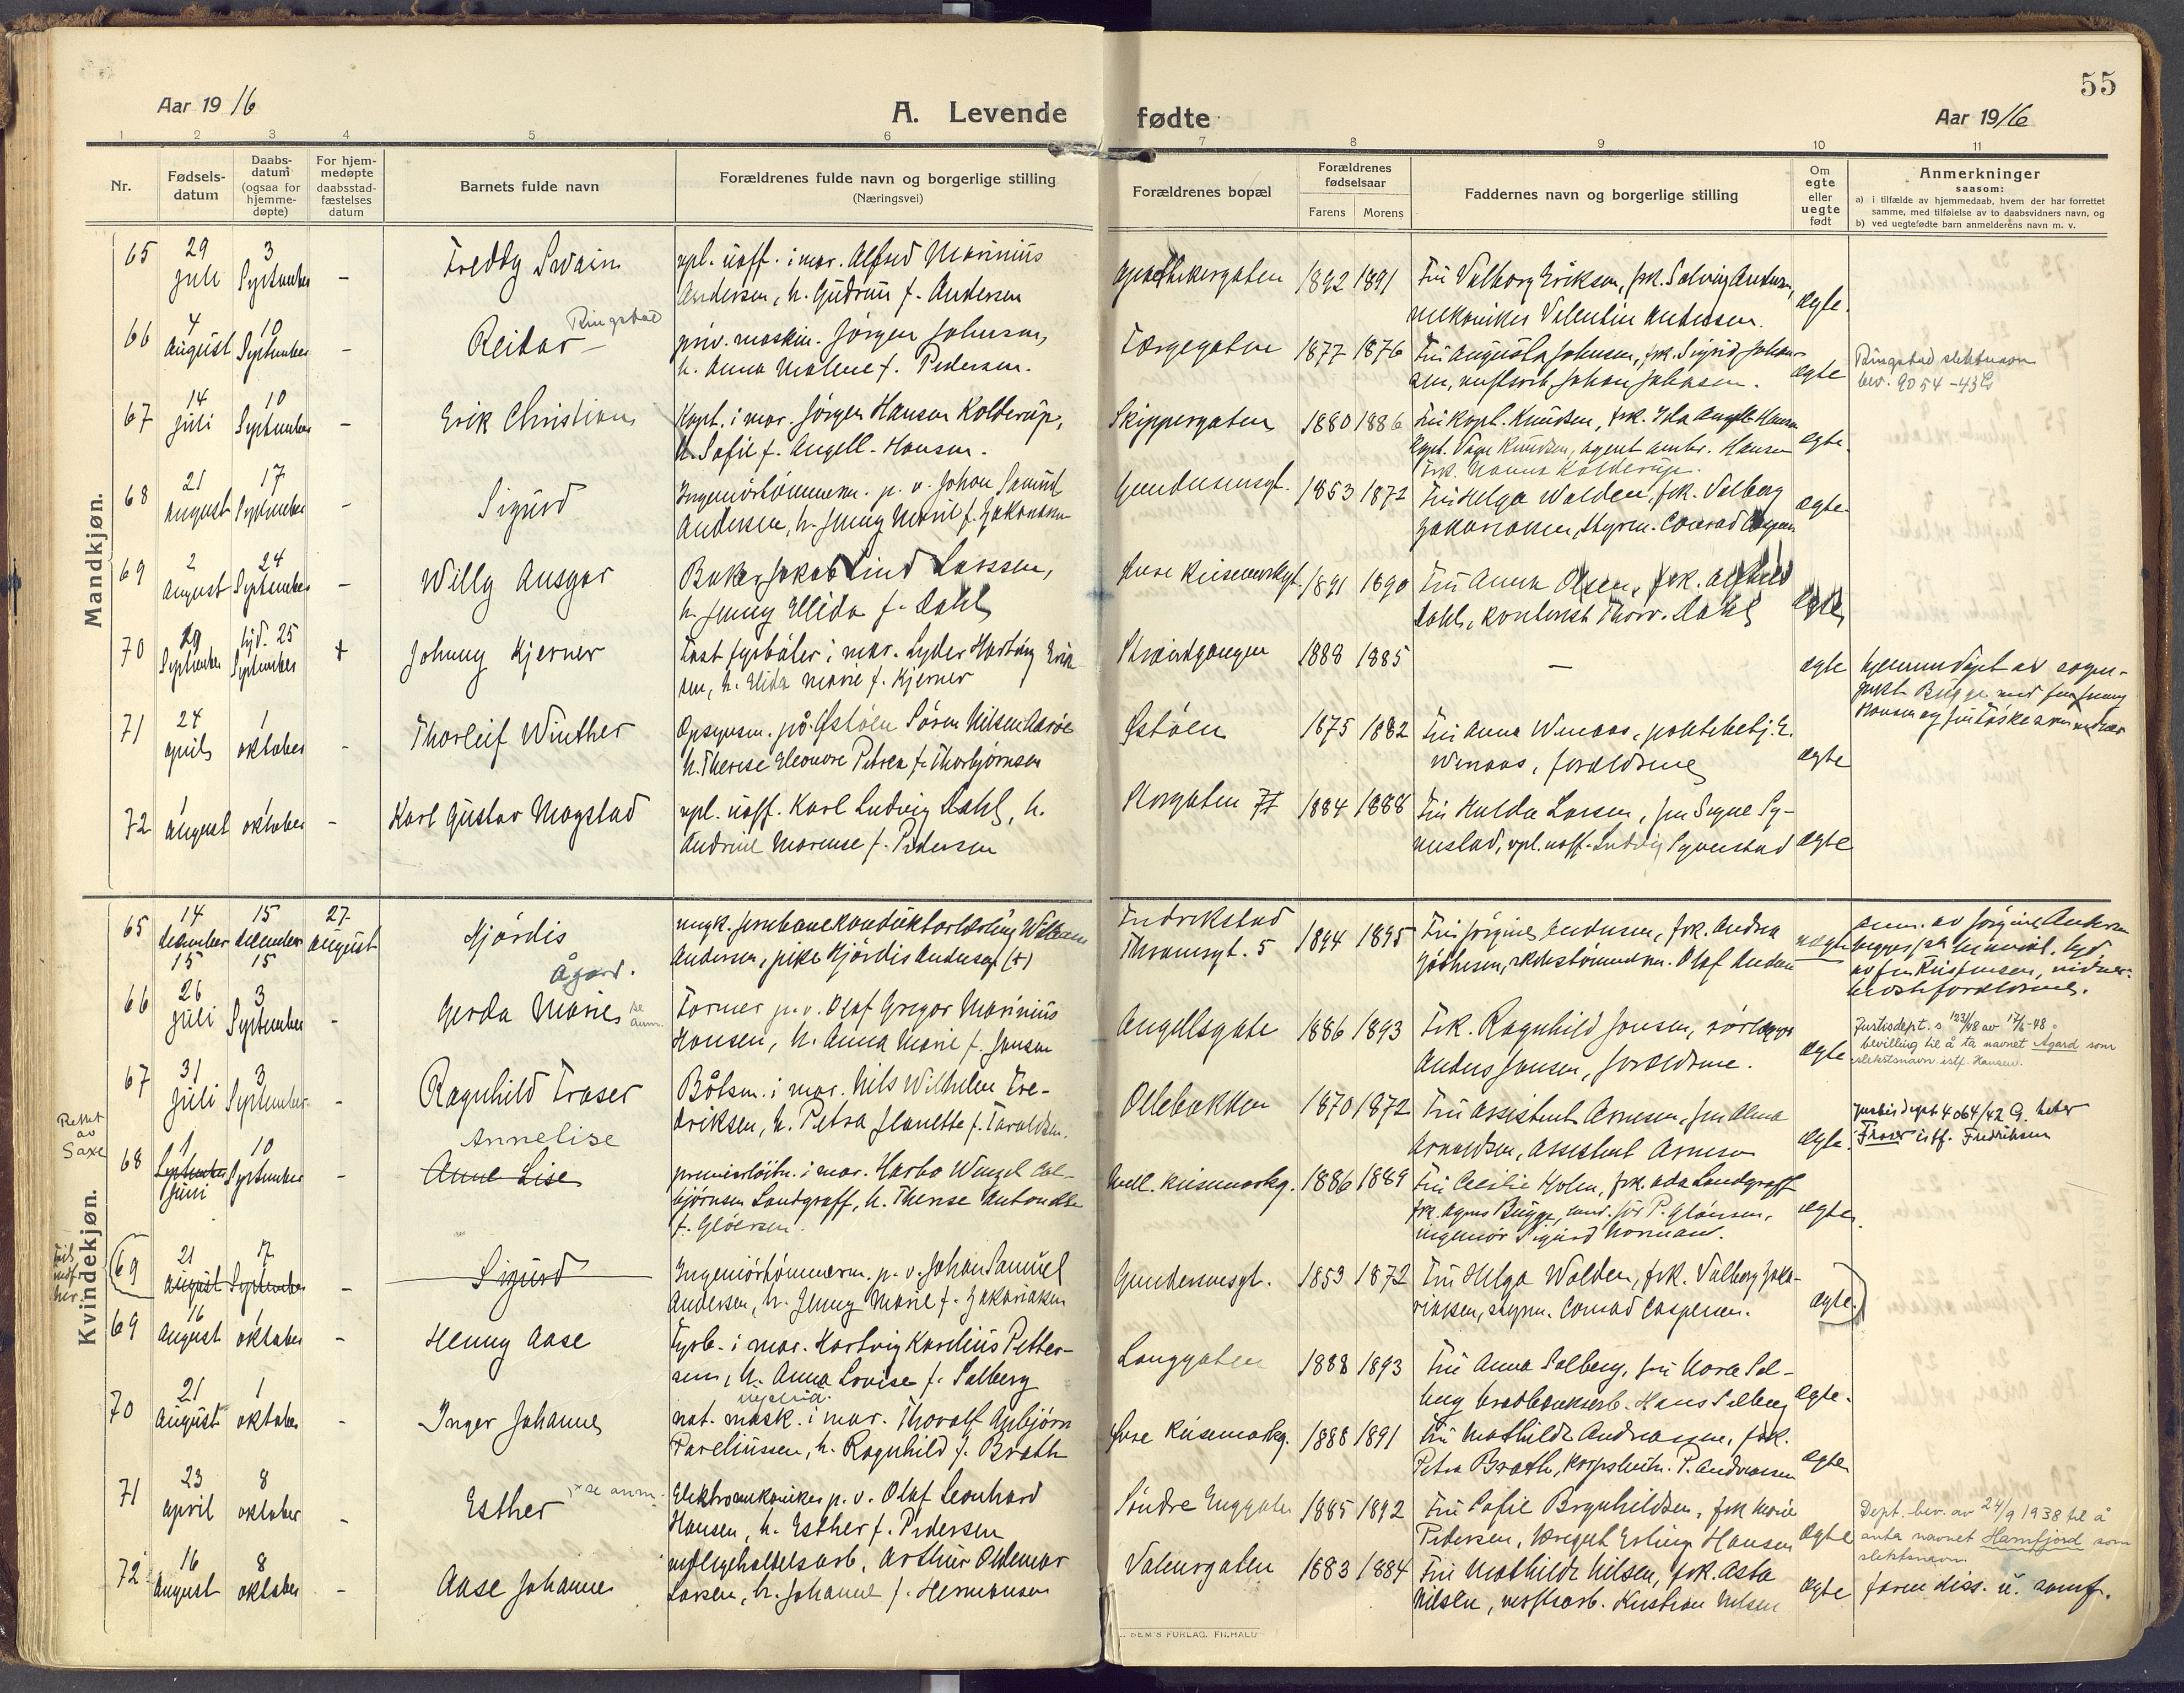 55
Aar 1916
A. Levende fødte
Aar 1916
1 2 3 4 5 6 7 8 9 10 11
Nr.
Fødsels-
datum
Daabs-
datum
(ogsaa for
hjemme-
døpte)
For hjem-
medøpte
daabsstad-
fæstelses
datum
Barnets fulde navn
Forældrenes fulde navn og borgerlige stilling
(Næringsvei)
Forældrenes bopæl
Forældrenes
fødselsaar
Farens Morens
Faddernes navn og borgerlige stilling
Om
egte
eller
uegte
født
Anmerkninger
saasom:
a) i tilfælde av hjemmedaab, hvem der har forrettet
samme, med tilføielse av to daabsvidners navn, og
b) ved uegtefødte barn anmelderens navn m. v.
Mandkjøn.
65 29 juli 3 September - Freddy Svain
vpl. uoff. i mar. Alfred Marinius
Andersen, h. Gudrun f. Andersen
Apothekergaten 1892 1891
Fru Valborg Eriksen, frk. Solveig Andersen,
mekaniker Valentin Andersen. ægte.
66 4 august 10 September - Reidar Ringstad
priv. maskin. Jørgen Johnsen,
h. Anna Malene f. Pedersen.
Færgegaten 1877 1876
Fru Augusta Johnsen, frk. Sigrid Johan-
sen, Johan Johnsen. ægte
Ringstad slektsnavn
bev. 9054-43
67 14 juli 10 September - Erik Christian
Kapt. i mar. Jørgen Hansen Kolderup,
h. Sofie f. Angell-Hansen.
Skippergaten 1880 1886
Fru Kapt. Knudsen, frk. Ida Angell-Hansen
Kapt. Knudsen, agent ambr. Hansen
frk. Nanna Kolderup. ægte.
68 21 august 17 September - Sigurd
Ingeniørtømmerm. p. v. Johan Samuel
Andersen, h. Jenny Marie f. Zakariasen
Gundersensgt. 1853 1872
Fru Helga Walden, frk. Valborg
Zakariasen, styrm. Conrad Caspersen ægte
69 2 august 24 September - Willy Ansgar
Baker Jakob Lind Larssen,
h. Jenny Elida f. Dahl
1891 1890
Fru Anna Olsen, frk. Alfhild
Dahl, kontorist Thorv. Dahl ægte
70 29 September hjd. 25 September + Johnny Kjerner
Fast fyrbøter i mar. Lyder Hartvig Erik-
sen, h. Elida Marie f. Kjerner
Strandgangen 1888 1885 - ægte
hjemmedøpt av sogne-
prest Bugge med fru Jenny
Hansen og
71 24 april 1 oktober - Thorleif Winther
Opsynsm. på Østøen Søren Nilsen Aarøe
h. Therese Eleonore Petrea f. Thorbjørnsen
Østøen 1875 1882
Fru Anna Wenaas, E.
Wenaas, forældrene ægte
72 1 august 1 oktober - Karl Gustav Magstad
vpl. uoff. Karl Ludvig Dahl, h.
Andrine Marense f. Pedersen
Storgaten 77 1884 1888
Fru Hulda Larsen, fru Signe Sy-
verstad, vpl. uoff. Ludvig Syverstad ægte
Kvindekjøn.
65 14 december 15 15 december 15 27 august Hjørdis
ungk. jernbanekonduktørlærling William
Andersen, pike Hjørdis Andersen (+)
Fredrikstad
Thranesgt. 5 1894 1895
Fru Jørgine Andersen, frk. Andrea
Olaf Andersen uægte
anm. av Jørgine Andersen
av fru Kristensen, vidner:
forældrene.
66 26 juli 3 September - Gerda Marie Ågard. se anm.
Former p. v. Olaf Gregor Marinius
Hansen, h. Anna Marie f. Jensen
Angellsgate 1886 1893
Frk. Ragnhild Jensen, rørlægger
Anders Jensen, forældrene. ægte
Justisdept.s 123/48 av 17/6-48
bevilling til å ta navnet Ågard som
slektsnavn istf. Hansen.
67 31 juli 3 September - Ragnhild Fraser
Båtsm. i mar. Nils Wilhelm Fre-
driksen, h. Petra Jeanette f. Taraldsen.
Ollebakken 1870 1872
Fru Assistent Arnesen, fru Alma
Arnoldsen, Assistent Arnesen ægte.
Justisdept 4064/42 G. heter
Fraser istf. Fredriksen
Rettet
av
Saxe
68 1 September juni 10 September - Anne Lise Annelise
premierløitn. i mar. Harbo Wenzel Col-
bjørnsen Landgraff, h. Therese Antonette
f. Gløersen.
Vell. Keisemarkg. 1886 1889
Fru Cecilie Holm, frk. Ada Landgraff
frk. Agnes Bugge, cand. jur P. Gløersen,
ingeniør Sigurd Normann. ægte
69 21 august 17 September - Sigurd
Ingeniørtømmerm. p. v. Johan Samuel
Andersen, h. Jenny Marie f. Zakariasen
Gundersensgt. 1853 1872
Fru Helga Walden, frk. Valborg Zaka-
riasen, styrm. Conrad Caspersen. ægte.
69 16 august 1 oktober - Henny Aase
Fyrb. i mar. Hartvig Kornelius Petter-
sen, h. Anna Lovise f. Solberg
Langgaten 1888 1893
Fru Anna Solberg, fru Maria Sol-
berg Hans Solberg ægte.
70 21 august 1 oktober - Inger Johanne
nat. mask. i mar. Thoralf Asbjørn
Paveliussen, h. Ragnhild f. Braath
Øvre Keisemarkg. 1888 1891
Fru Mathilde Andreassen, frk.
Petra Braath, korpsløitn. P. Andreassen ægte
71 23 april 8 oktober - Esther x se anm.
Elektromekaniker p. v. Olaf Leonhard
Hansen, h. Esther f. Pedersen
Søndre Enggate 1885 1892
Fru Sofie Brynhildsen, frk Marie
Pedersen, Erling Hansen ægte
Dept. bev. av 24/9 1938 til å
anta navnet Hamfjord som
slektsnavn
72 16 august 8 oktober - Aase Johanne
Arthur Oldemar
Larsen, h. Johanne f. Hermansen
Valmsgaten 1883 1884
Fru Mathilde Nilsen, frk. Asta
Nilsen, verftsarb. Kristian Nilsen ægte
faren diss. u. samf.
SEM'S FORLAG, FR.HALD